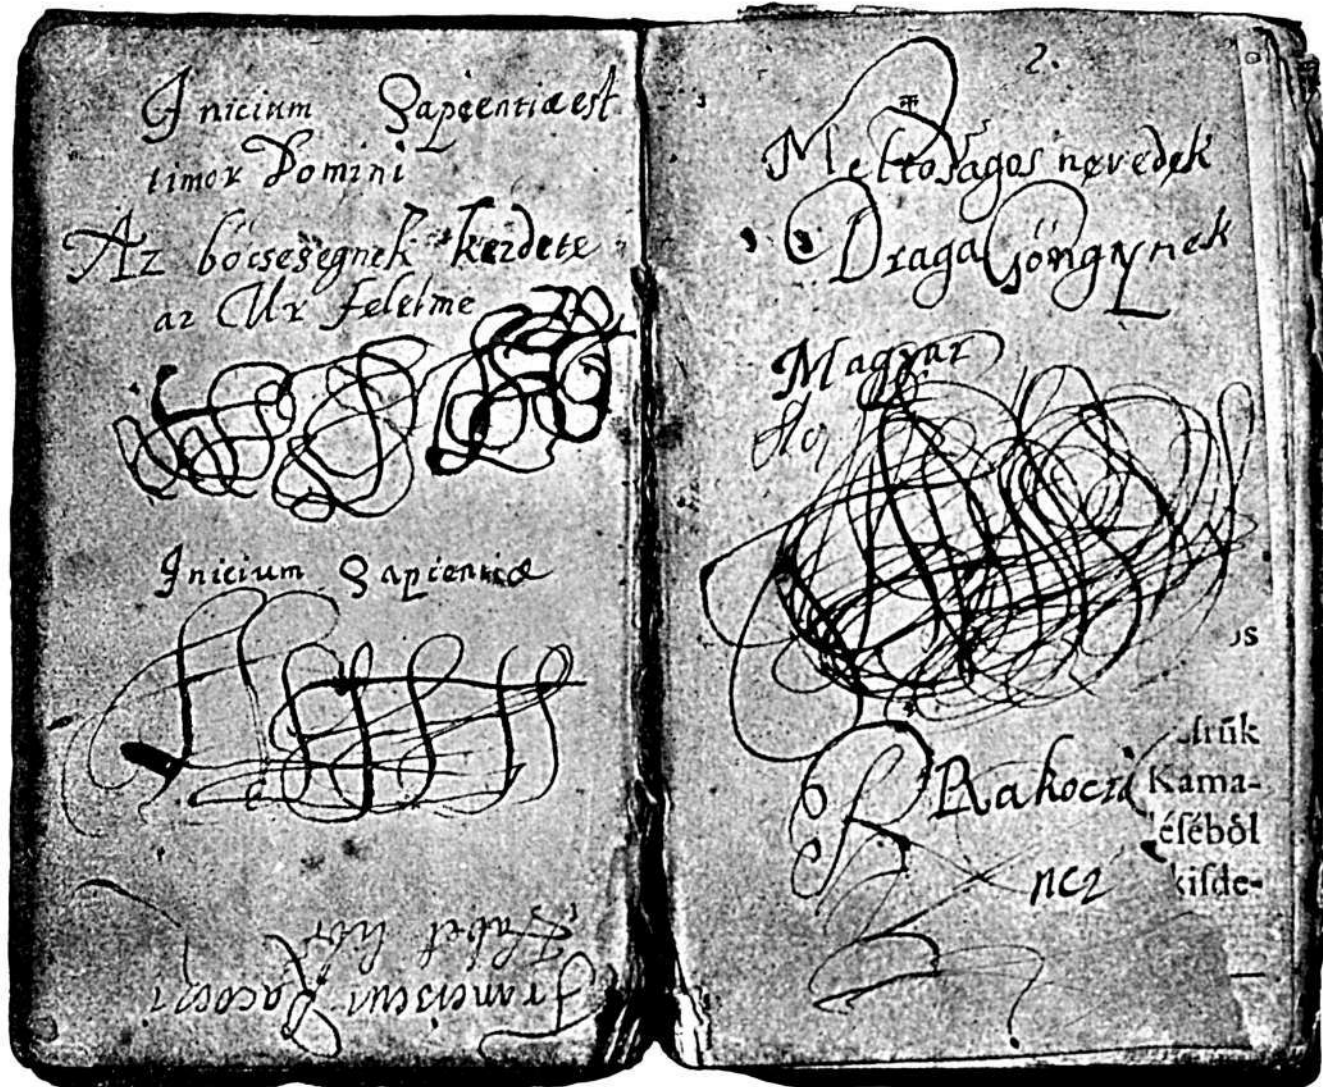 Inicium Sapientiæ est
timor Domini
Az bőcsesegnek kezdete
az Ur felelme
Inicium Sapientiæ
Franciscus Racoczi
habet hunc
2.
Meltosagos nevedek
Draga Gőngynek
Magyar
Rakoczi
ncz
os
Kama-
éséből
kisde-